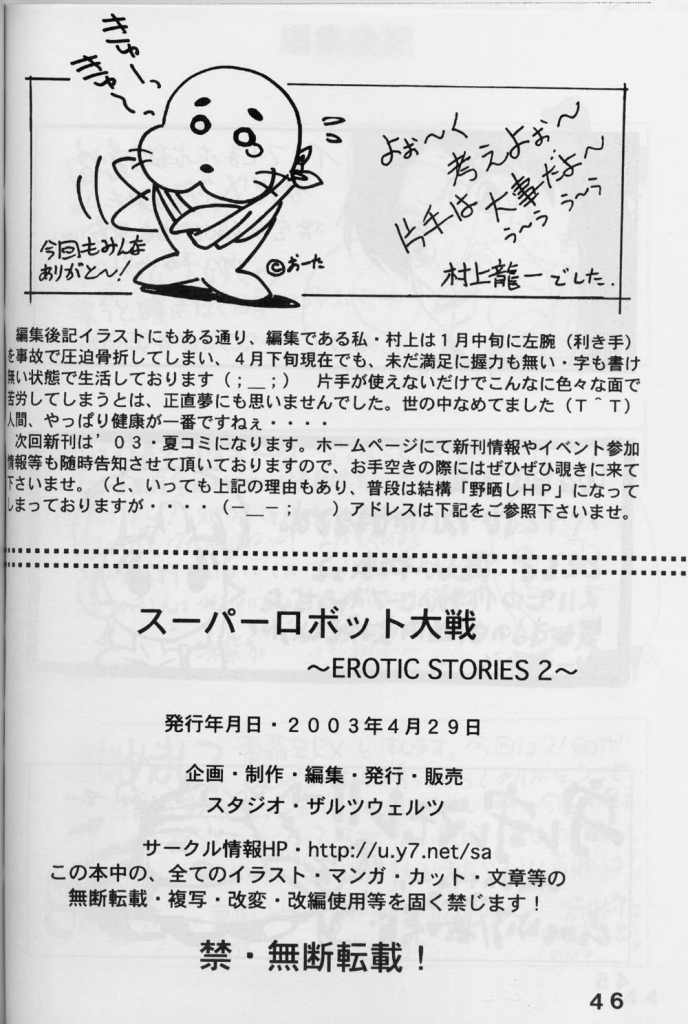 きゅーっ
きゅ〜っ
よぉ〜く
考えよぉ〜
片手は大事だよ〜
う〜う う〜う
今回もみんな
ありがと〜！
©おーた
村上龍一でした.
編集後記イラストにもある通り、編集である私・村上は１月中旬に左腕（利き手）
を事故で圧迫骨折してしまい、４月下旬現在でも、未だ満足に握力も無い・字も書け
無い状態で生活しております（；＿；）　片手が使えないだけでこんなに色々な面で
苦労してしまうとは、正直夢にも思いませんでした。世の中なめてました（Ｔ＾Ｔ）
人間、やっぱり健康が一番ですねぇ・・・・
次回新刊は’０３・夏コミになります。ホームページにて新刊情報やイベント参加
情報等も随時告知させて頂いておりますので、お手空きの際にはぜひぜひ覗きに来て
下さいませ。（と、いっても上記の理由もあり、普段は結構「野晒しＨＰ」になって
しまっておりますが・・・・（－＿－；　　）アドレスは下記をご参照下さいませ。
スーパーロボット大戦
〜EROTIC STORIES 2〜
発行年月日・２００３年４月２９日
企画・制作・編集・発行・販売
スタジオ・ザルツウェルツ
サークル情報HP・http://u.y7.net/sa
この本中の、全てのイラスト・マンガ・カット・文章等の
無断転載・複写・改変・改編使用等を固く禁じます！
禁・無断転載！
46